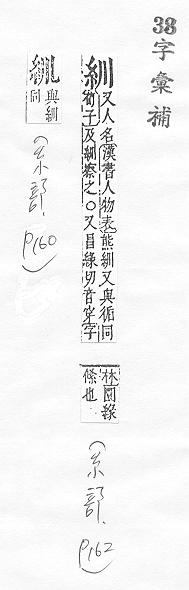 38字彙補
紃
又人名漢書人物表熊紃又與循同
荀子及紃察之○又昌緣切音穿字
林圜緣
條也
(糸部. P162)
與紃
同
(糸部. P160)